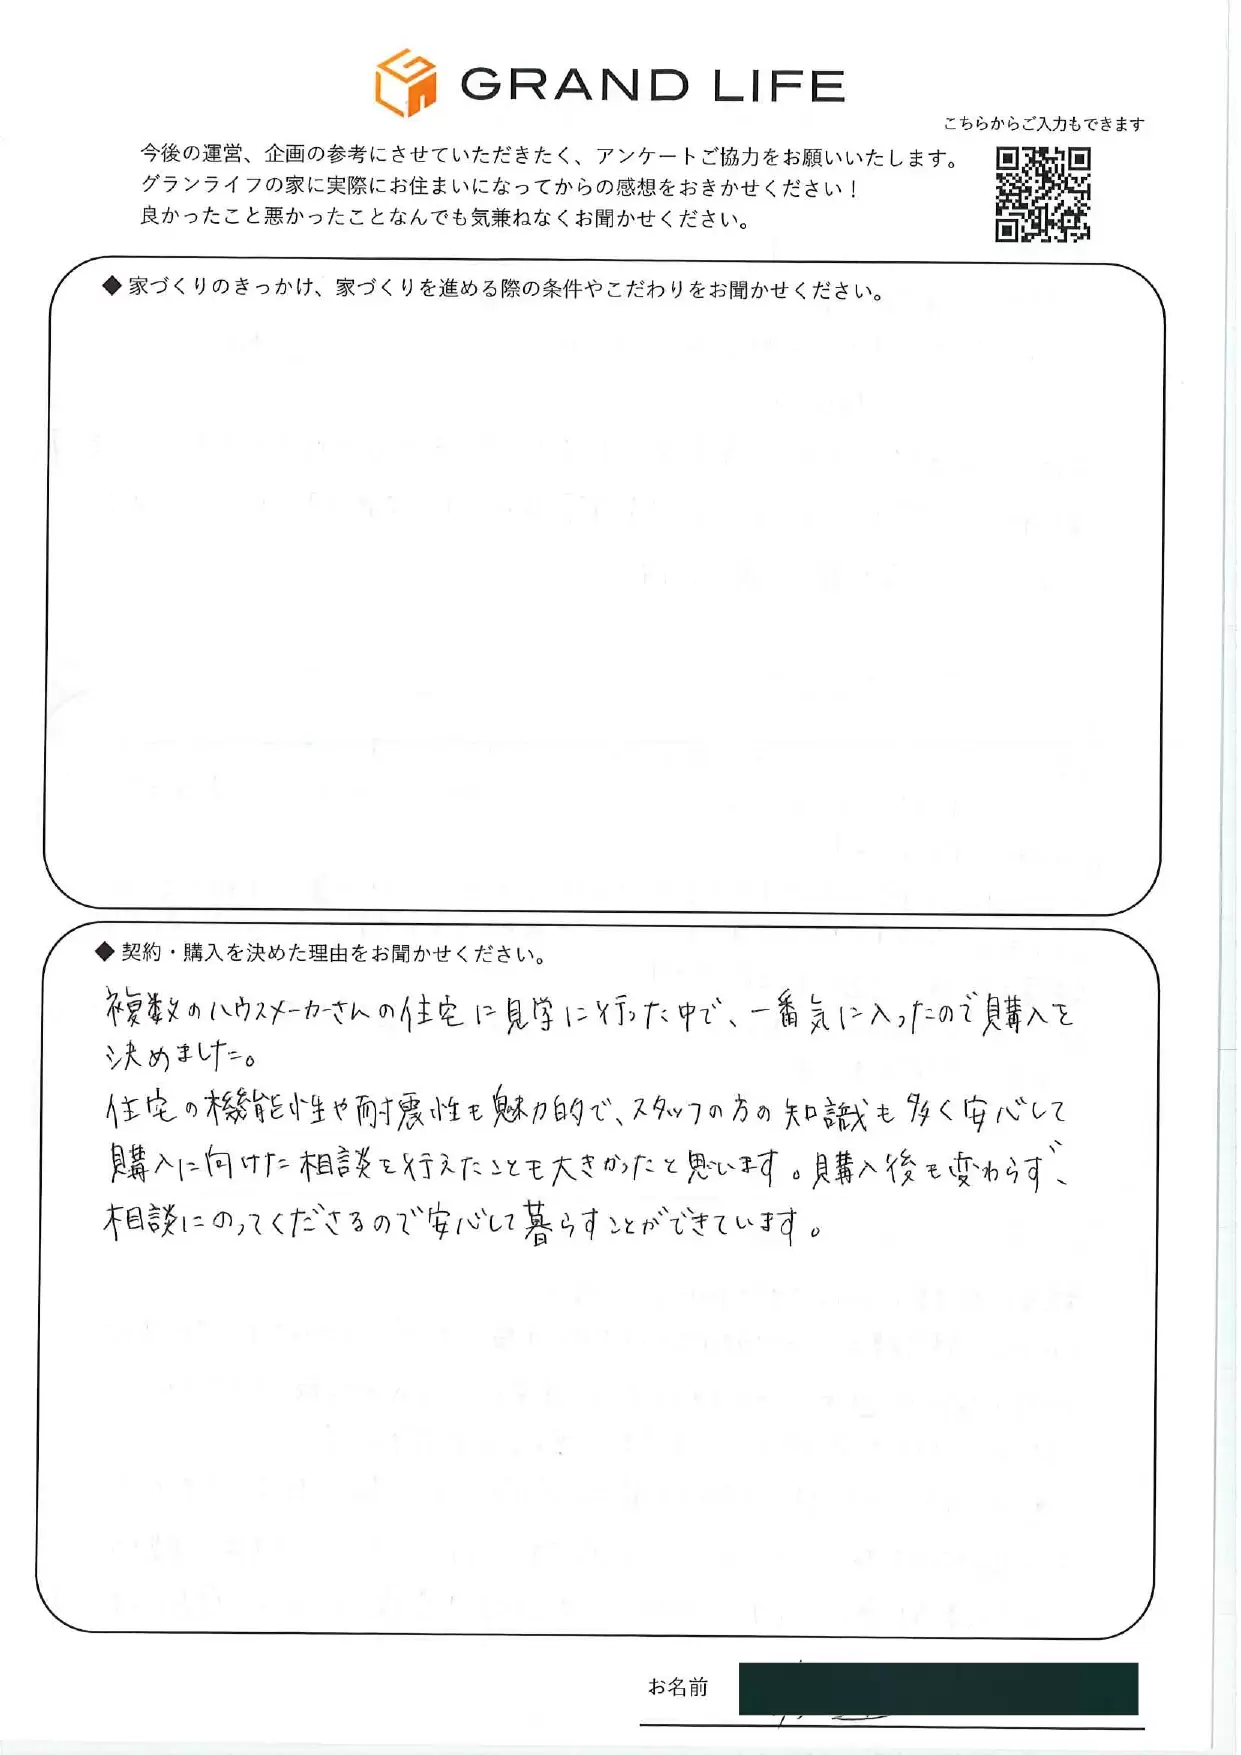 GRAND LIFE
こちらからご入力もできます
今後の運営、企画の参考にさせていただきたく、アンケートご協力をお願いいたします。
グランライフの家に実際にお住まいになってからの感想をおきかせください！
良かったこと悪かったことなんでも気兼ねなくお聞かせください。
◆ 家づくりのきっかけ、家づくりを進める際の条件やこだわりをお聞かせください。
◆ 契約・購入を決めた理由をお聞かせください。
複数のハウスメーカーさんの住宅に見学に行った中で、一番気に入ったので購入を
決めました。
住宅の機能性や耐震性も魅力的で、スタッフの方の知識も多く安心して
購入に向けた相談を行えたことも大きかったと思います。購入後も変わらず、
相談にのってくださるので安心して暮らすことができています。
お名前